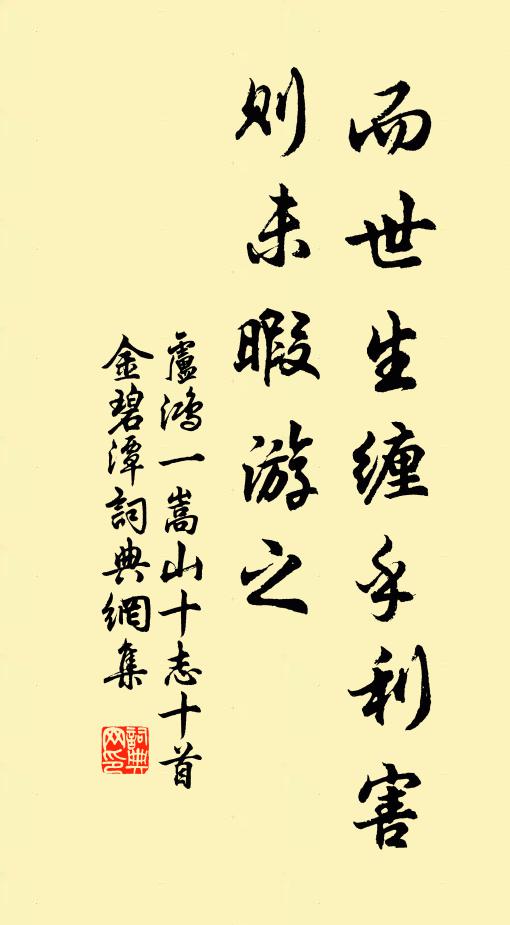 而世生缠乎利害
则未暇游之
盧鴻一嵩山十志十首
金碧潭詞典網集
詞典网印